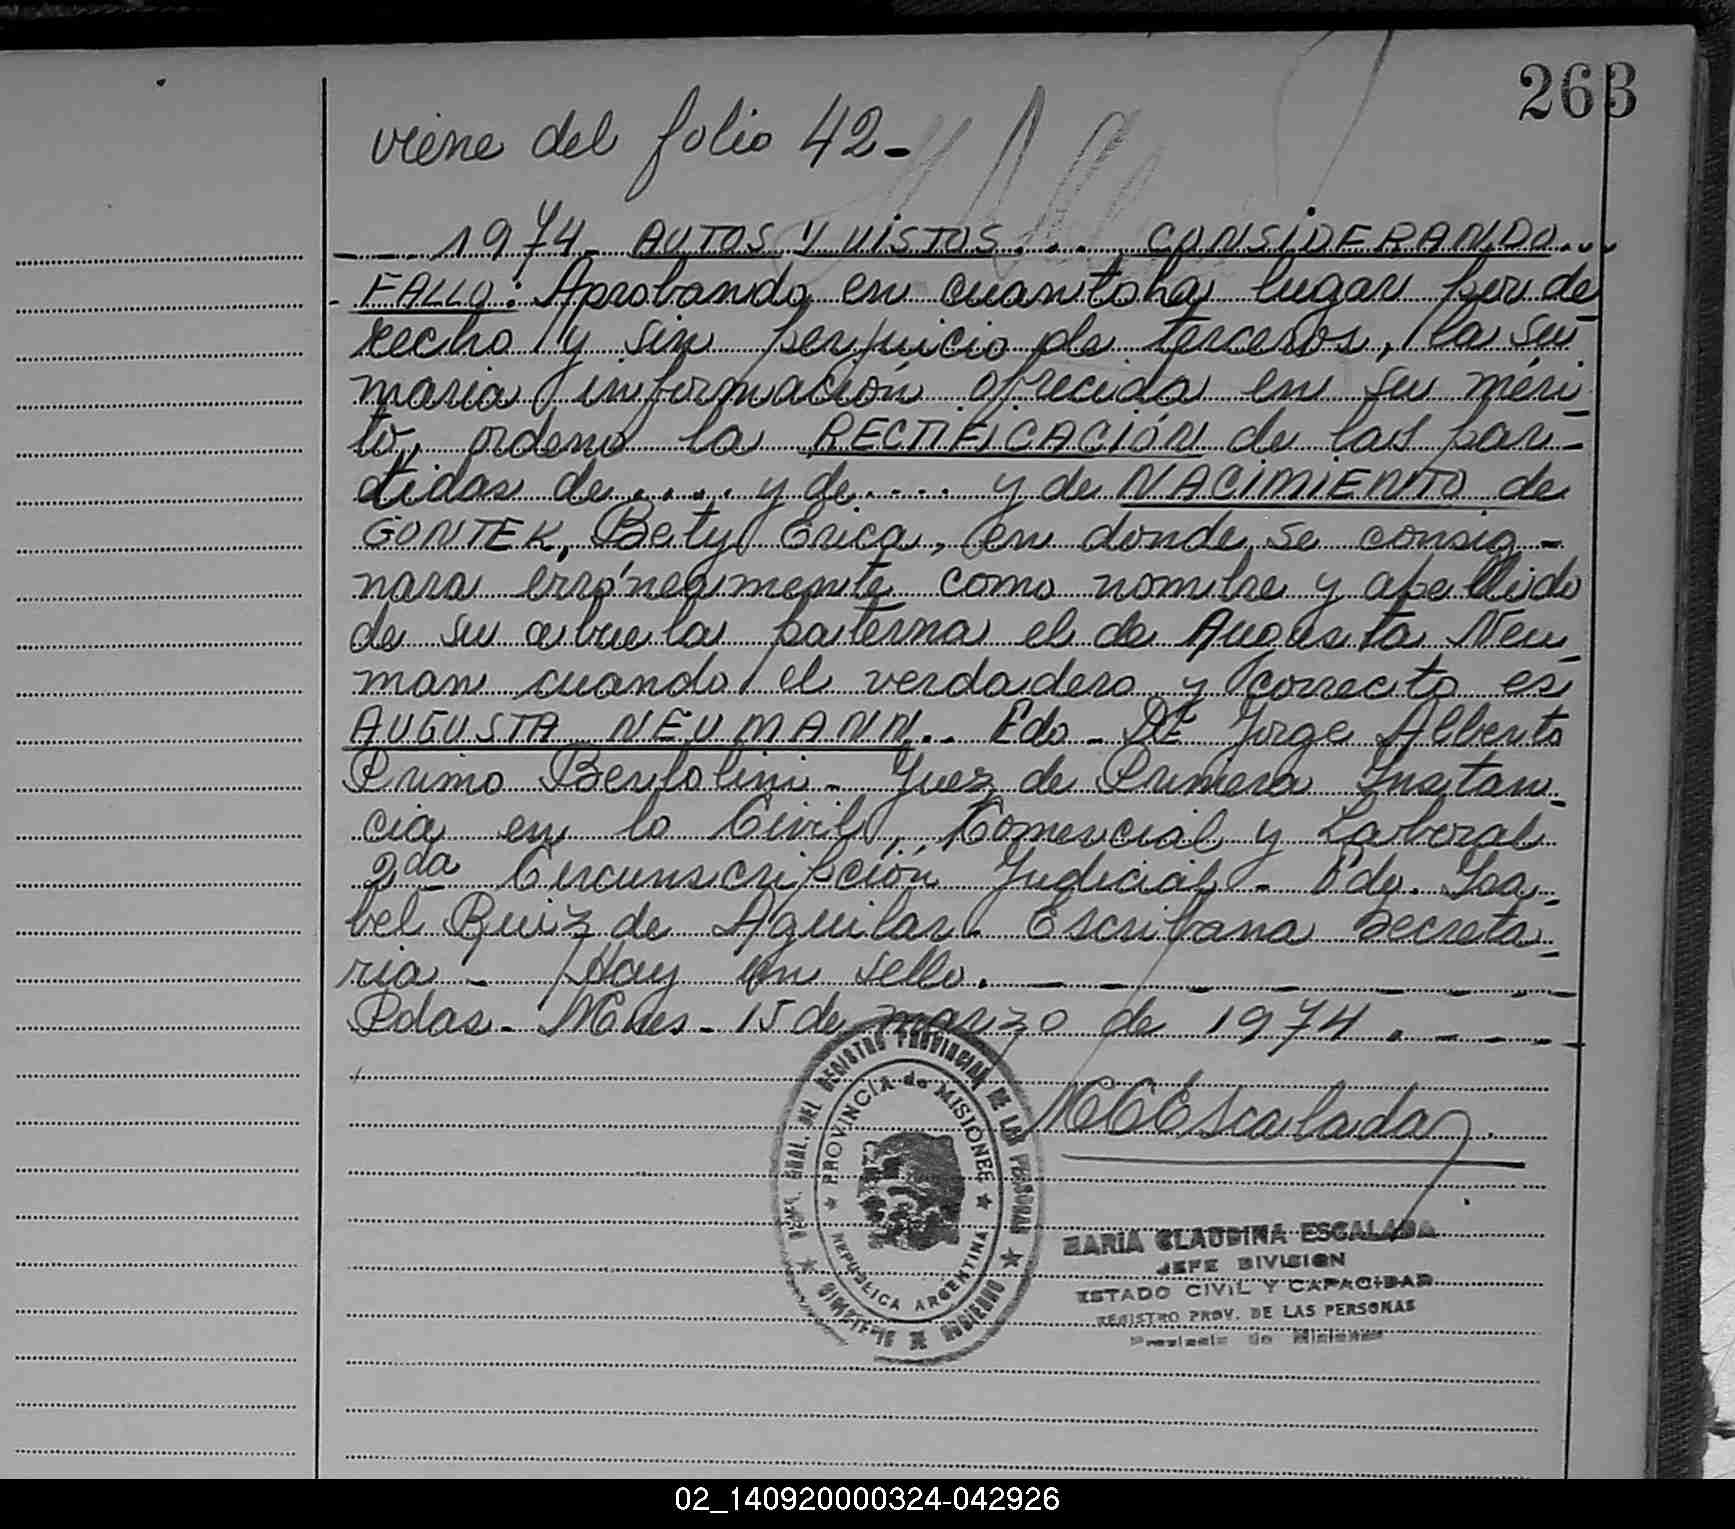 263
viene del folio 42-
1974- AUTOS Y VISTOS.... CONSIDERANDO...
- FALLO: Aprobando en cuanto ha lugar por de-
recho y sin perjuicio de terceros, la su-
maria información ofrecida en su méri-
to, ordeno la RECTIFICACIÓN de las par-
tidas de..... y de.... y de NACIMIENTO de
GONTEK, Bety Erica, en donde se consig-
nara erróneamente como nombre y apellido
de su abuela paterna el de Augusta Neu-
man cuando el verdadero y correcto es
AUGUSTA NEUMANN.. Fdo- Dr Jorge Alberto
Primo Bertolini- Juez de Primera Instan-
cia en lo Civil, Comercial y Laboral
2da Circunscripción Judicial- Fdo. Isa-
bel Ruiz de Aguilar. Escribana Secreta-
ria- Hay un sello.
Pdas- Mnes- 15 de marzo de 1974.
MCEscalada
DEL REGISTRO PROVINCIAL DE LAS PERSONAS
PROVINCIA de MISIONES
REPUBLICA ARGENTINA
MARIA CLAUDINA ESCALADA
JEFE DIVISION
ESTADO CIVIL Y CAPACIDAD
REGISTRO PROV. DE LAS PERSONAS
Provincia de Misiones
02_140920000324-042926